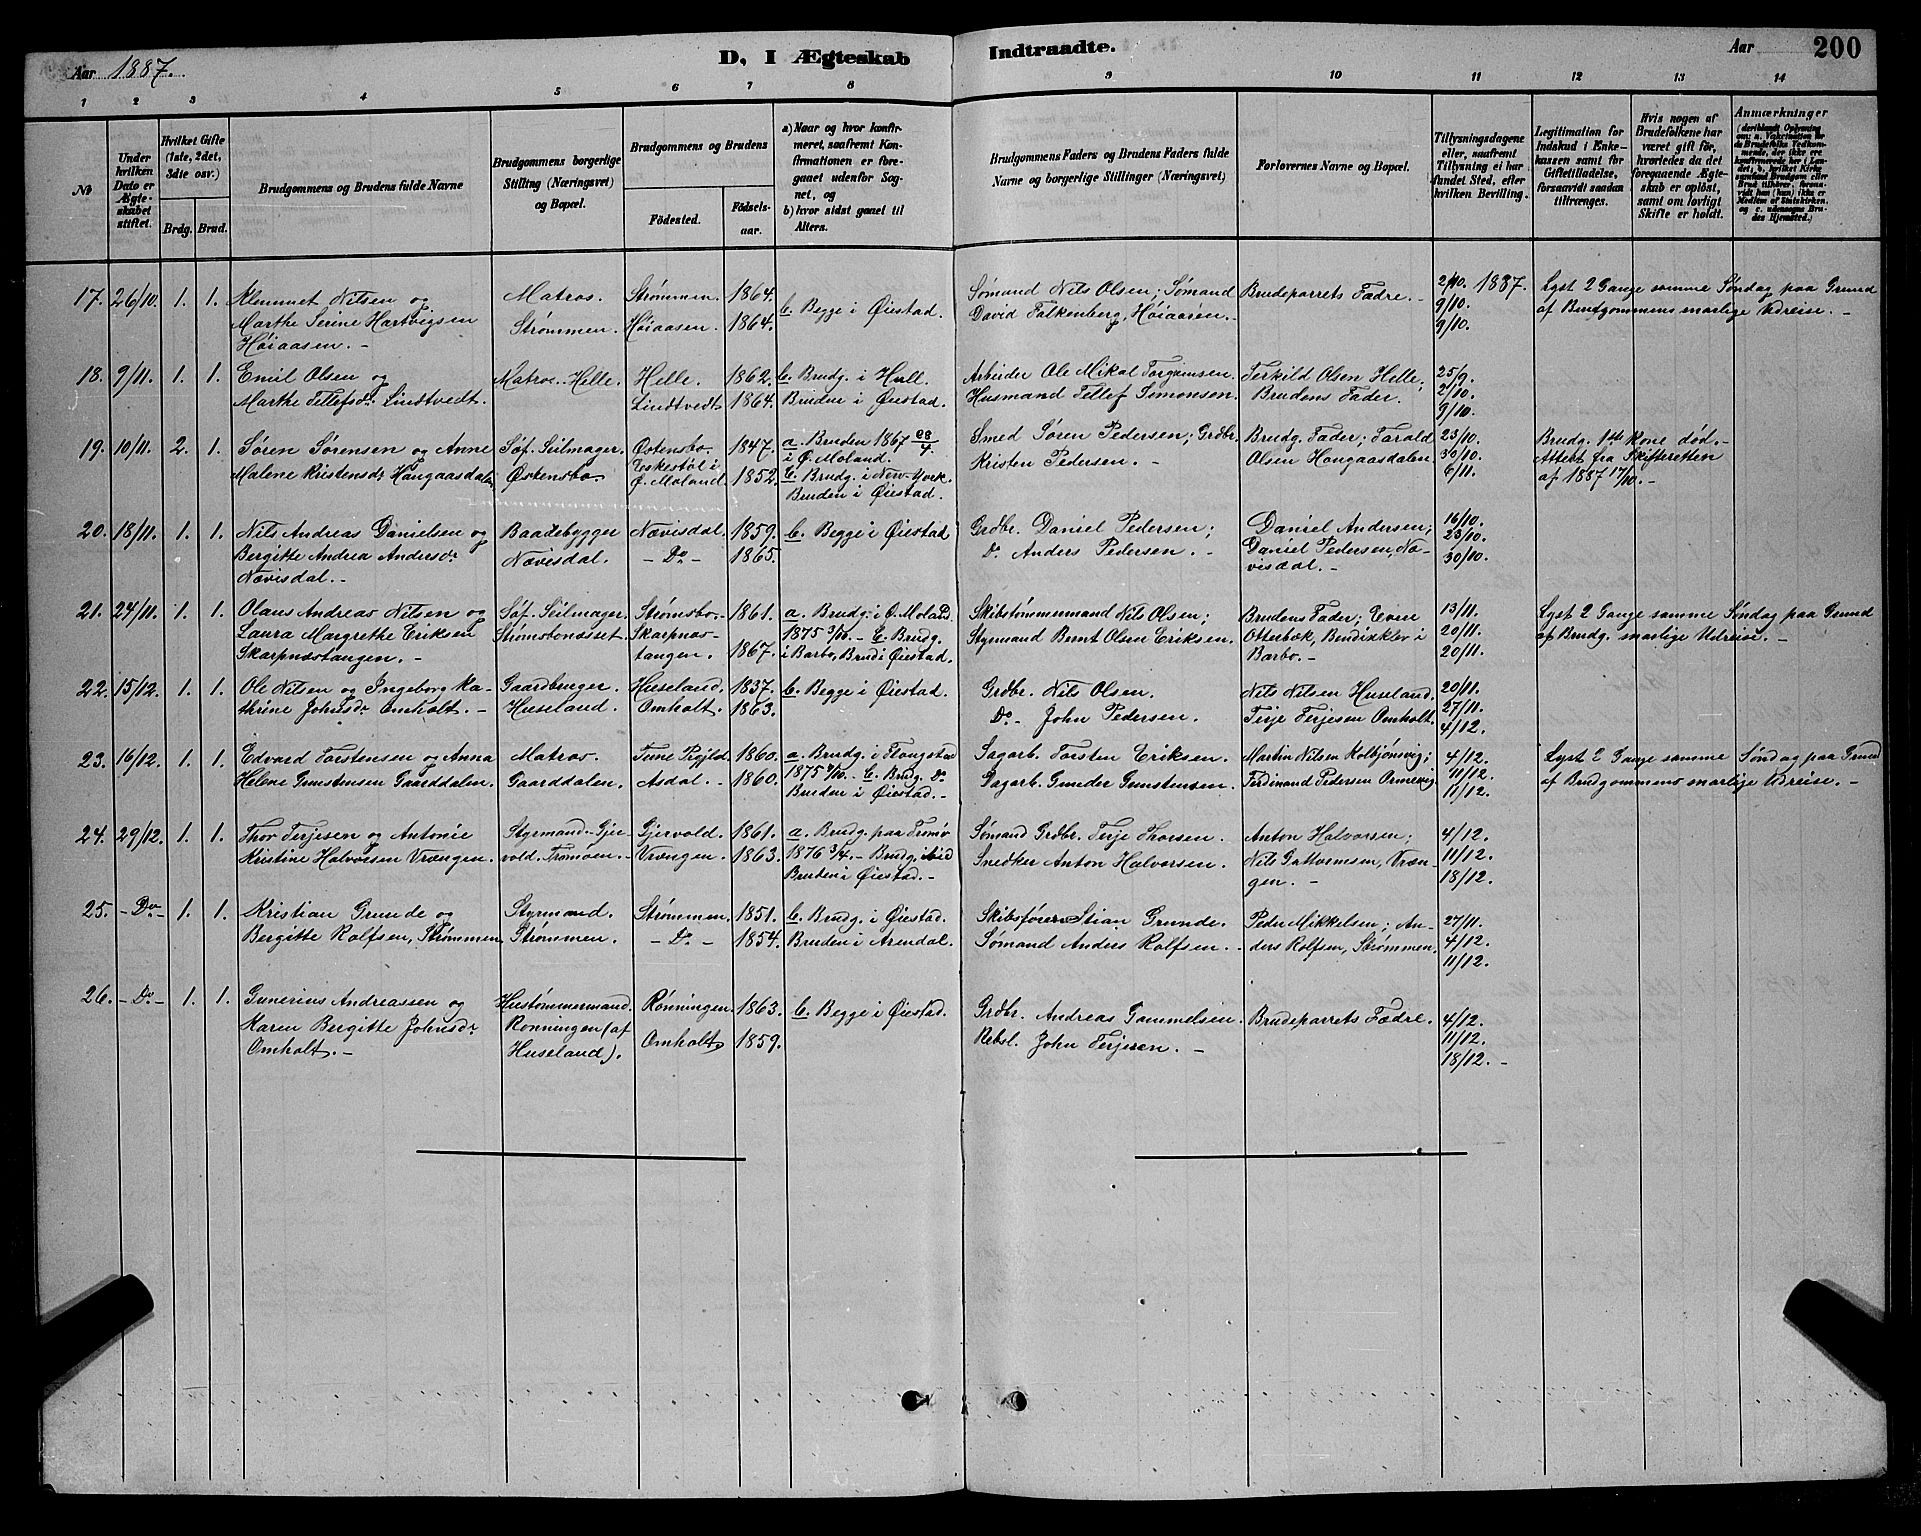 Aar 1887.
D. I Ægteskab Indtraadte.
Aar
200
1 2 3 4 5 6 7 8 9 10 11 12 13 14
No
Under hvilken Dato er Ægteskabet stiftet.
Hvilket Gifte (1ste, 2det, 3dte osv.)
Brdg. Brud.
Brudgommens og Brudens fulde Navne
Brudgommens borgerlige Stilling (Næringsvei) og Bopæl.
Brudgommens og Brudens
Födested.
Födselsaar.
a) Naar og hvor konfirmeret, saafremt Konfirmationen er foregaaet udenfor Sognet, og
b) hvor sidst gaaet til Alters.
Brudgommens Faders og Brudens Faders fulde Navne og borgerlige Stillinger (Næringsvei)
Forlovernes Navne og Bopæl.
Tillysningsdagene eller, saafremt Tillysning ei har fundet Sted, efter hvilken Bevilling.
Legitimation for Indskud i Enkekassen samt for Giftetilladelse, forsaavidt saadan tiltrænges.
Hvis nogen af Brudefolkene har været gift før, hvorledes da det foregaaende Ægteskab er opløst, samt om lovligt Skifte er holdt.
Anmærkninger (deriblandt Oplysning om: a. Vaccination av de Brudefolks Vedkommende, der ikke ere konfirmerede her i Landet, b. hvilket Kirkesamfund Brudgom eller Brud tilhører, forsaavidt han (hun) ikke er Medlem af Statskirken, og c. udensogns Brudes Hjemsted.)
17. 26/10. 1. 1. Klemmet Nilsen og Marthe Serine Hartvigsen Høiaasen. –
Matros. Strømmen.
Strømmen. Høiaasen.
1864. 1864.
b. Begge i Øiestad.
Sømand Nils Olsen; Sømand David Falkenberg, Høiaasen.
Brudeparrets Fædre. –
2/10. 1887. 9/10. 9/10.
Lyst 2 Gange samme Søndag paa Grund af Brudgommens snarlige Udreise. –
18. 9/11. 1. 1. Emil Olsen og Marthe Tellefsdr. Lindtvedt.
Matros. Helle.
Helle. Lindtvedt
1862. 1864.
b. Brudg. i Hull. Bruden i Øiestad.
Arbeider Ole Mikal Torgersen. Husmand Tellef Simonsen.
Terkild Olsen Helle; Brudens Fader.
25/9. 2/10. 9/10.
19. 10/11. 2. 1. Søren Sørensen og Anne Malene Kristensdr. Haugaasdalen.
Søf. Seilmager. Østensbo.
Østensbo. Eskestøl i Ø. Moland.
1847. 1852.
a. Bruden 1867 28/4 i Ø. Moland. b. Brudg. i New-York. Bruden i Øiestad.
Smed Søren Pedersen; Grdbr. Kristen Pedersen. –
Brudg. Fader; Tarald Olsen Haugaasdalen.
23/10. 30/10. 6/11.
Brudg. 1ste Kone død. – Attest fra Skifteretten af 1887 17/10. –
20. 18/11. 1. 1. Nils Andreas Danielsen og Bergitte Andrea Andersdr. Nævisdal. –
Baadebygger Nævisdal.
Nævisdal. – Do –
1859. 1865.
b. Begge i Øiestad
Grdbr. Daniel Pedersen; Do. Anders Pedersen. –
Daniel Andersen; Daniel Pedersen, Nævisdal. –
16/10. 23/10. 30/10.
21. 24/11. 1. 1. Olaus Andreas Nilsen og Laura Margrethe Eriksen Skarpnæstangen. –
Søf. Seilmager. Strømsbonæsset
Strømsbo. Skarpnæstangen.
1861. 1867.
a. Brudg. i Ø. Moland 1875 3/10. – b. Brudg. i Barbo, Brud i Øiestad.
Skibstømmermand Nils Olsen; Styrmand Bernt Olsen Eriksen.
Brudens Fader; Even Ottebæk, Bendiksklev i Barbo. –
13/11. 20/11. 20/11.
Lyst 2 Gange samme Søndag paa Grund af Brudg. snarlige Udreise. –
22. 15/12. 1. 1. Ole Nilsen og Ingeborg Kathrine Johnsdr. Omholt. –
Gaardbruger. Huseland.
Huseland. Omholt.
1837. 1863.
b. Begge i Øiestad.
Grdbr. Nils Olsen. Do – John Pedersen.
Nils Nilsen Huseland. Terje Terjesen Omholt.
20/11. 27/11. 4/12.
23. 16/12. 1. 1. Edvard Torstensen og Anna Helene Gunstensen Gaarddalen.
Matros Gaarddalen.
Tune Prgjld. Asdal.
1860. 1860.
a. Brudg. i 1875 /10. b. Brudg. Do Bruden i Øiestad. –
Sagarb. Torsten Eriksen. Sagarb. Gunder Gunstensen.
Martin Nilsen Kolbjønsvig; Ferdinand Pedersen Ormevig.
4/12. 11/12. 11/12.
Lyst 2 Gange samme Søndag paa Grund af Brudgommens snarlige Udreise. –
24. 29/12. 1. 1. Thor Terjesen og Antonie Kristine Halvorsen Vrængen.
Styrmand. Gjervold. Tromøen. –
Gjervold. Vrængen.
1861. 1863.
a. Brudg. paa Tromø 1876 3/4. – Brudg. ibid Bruden i Øiestad. –
Sømand Grdbr. Terje Thorsen. Snedker Anton Halvorsen.
Anton Halvorsen; Nils Guttormsen, Vrængen. –
4/12. 11/12. 18/12.
25. – Do – 1. 1. Kristian Grunde og Bergitte Rolfsen, Strømmen
Styrmand. Strømmen.
Strømmen – Do –
1851. 1854.
b. Brudg. i Øiestad. Bruden i Arendal.
Skibsfører Stian Grunde. Sømand Anders Rolfsen. –
Peder Mikkelsen; Anders Rolfsen, Strømmen.
27/11. 4/12. 11/12.
26. – Do – 1. 1. Gunerius Andreassen og Karen Bergitte Johnsdr. Omholt. –
Hustømmermand Rønningen (af Huseland).
Rønningen. Omholt.
1863. 1859.
b. Begge i Øiestad.
Grdbr. Andreas Gammelsen. Rebsl. John Terjesen. –
Brudeparrets Fædre.
4/12. 11/12. 18/12. –